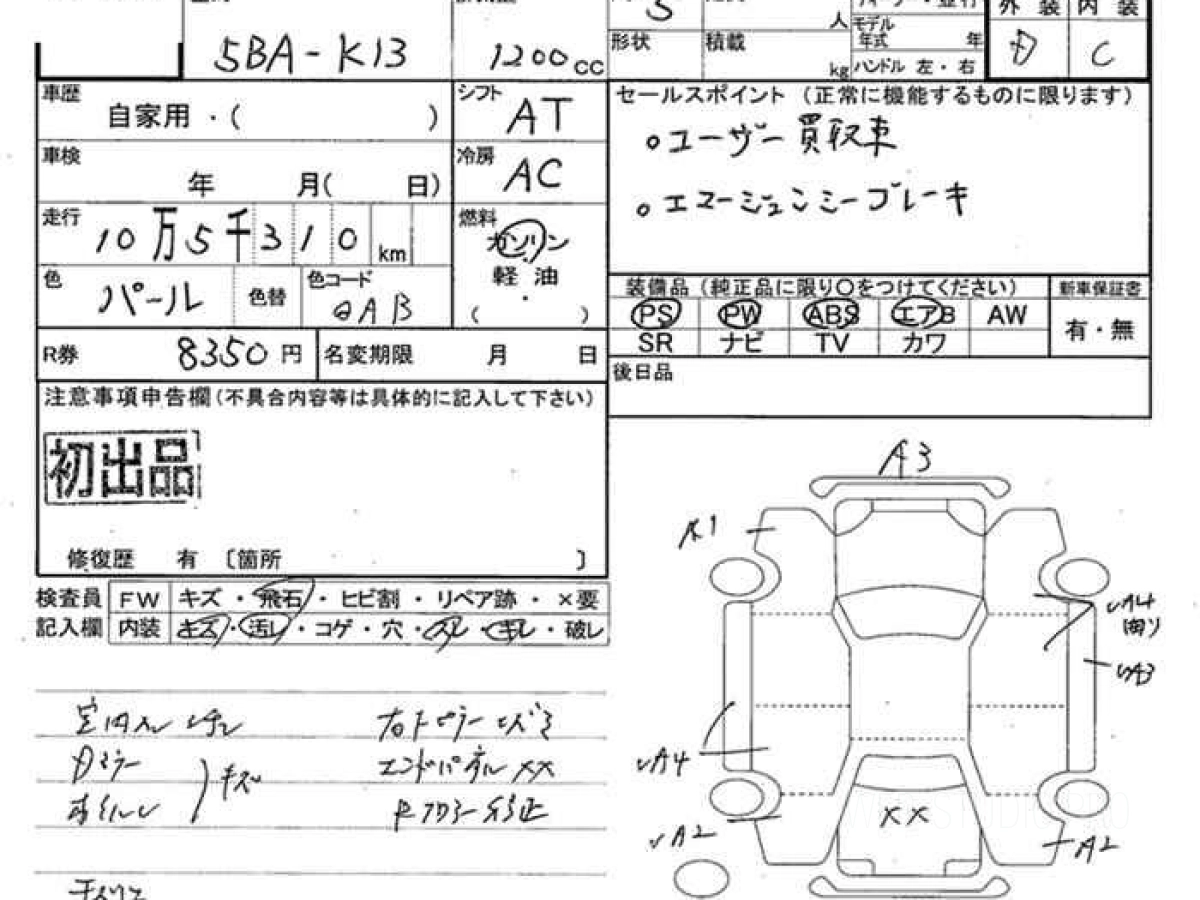 5 人 モデル年式 年 外装 内装
5BA-K13 1200 CC 形状 積載 kg ハンドル 左・右 D C
車歴 自家用・( ) シフト AT セールスポイント (正常に機能するものに限ります)
○ユーザー買取車
車検 年 月( 日) 冷房 AC
○エマージェンシーブレーキ
走行 10万5千310 km 燃料 ガソリン
軽油
( ・ )
色 パール 色替 色コード QAB
装備品 (純正品に限り○をつけてください) 新車保証書
PS PW ABS エアB AW 有・無
SR ナビ TV カワ
R券 8350 円 名変期限 月 日
後日品
注意事項申告欄(不具合内容等は具体的に記入して下さい)
初出品
修復歴 有 〔箇所 〕
検査員 FW キズ・飛石・ヒビ割・リペア跡・×要
記入欄 内装 キズ・汚レ・コゲ・穴・スレ・キレ・破レ
A3
A1
A4
A3
A4
A2
XX
A2
キズ
エンドパネル XX